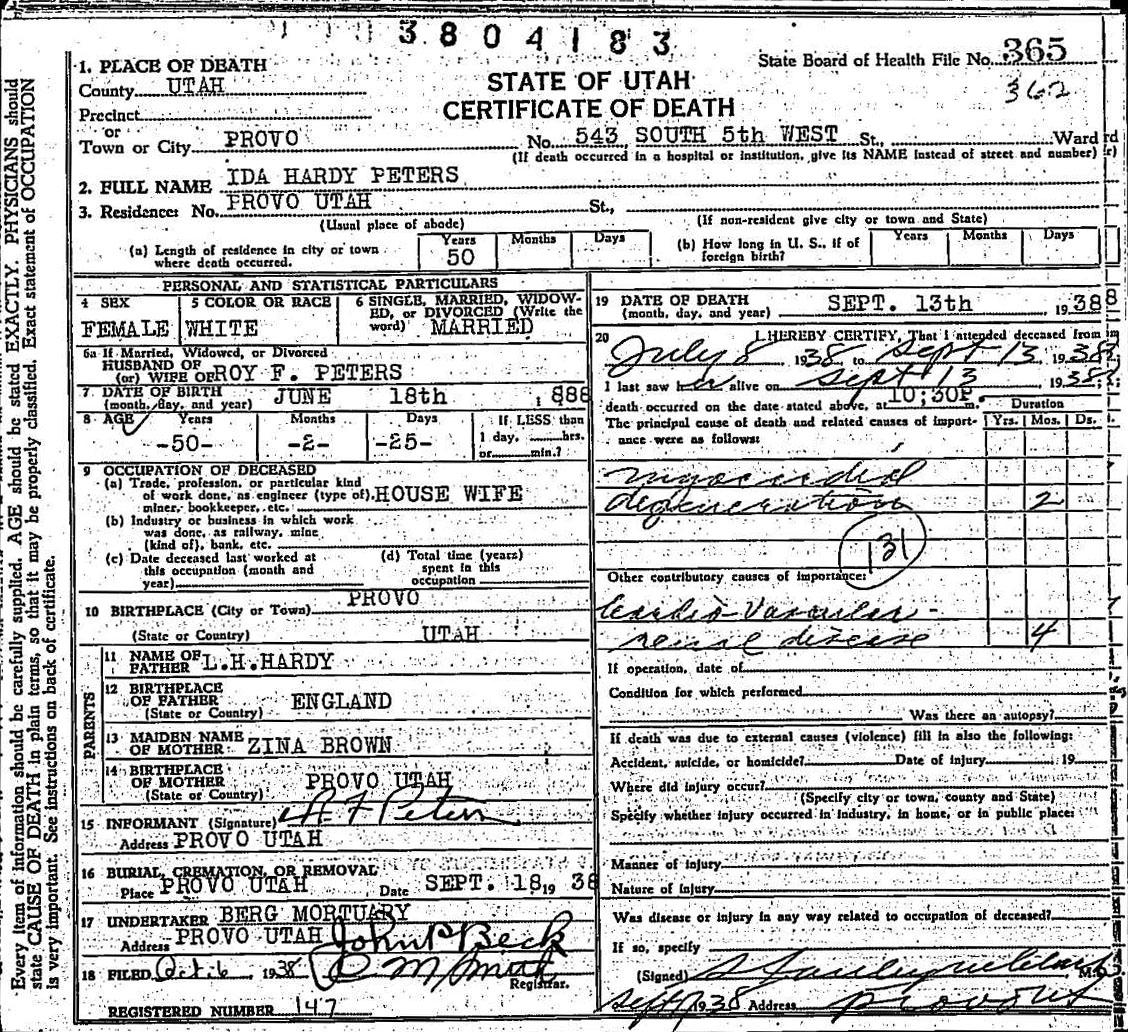 3804183
State Board of Health File No. 365
362
1. PLACE OF DEATH
County UTAH
STATE OF UTAH
CERTIFICATE OF DEATH
Precinct
or
Town or City PROVO No. 543 SOUTH 5th WEST St., Ward
(If death occurred in a hospital or institution, give its NAME instead of street and number)
2. FULL NAME IDA HARDY PETERS
3. Residence: No. PROVO UTAH St.,
(Usual place of abode) (If non-resident give city or town and State)
(a) Length of residence in city or town where death occurred. Years 50 Months Days
(b) How long in U. S., if of foreign birth? Years Months Days
PERSONAL AND STATISTICAL PARTICULARS
4 SEX FEMALE
5 COLOR OR RACE WHITE
6 SINGLE, MARRIED, WIDOWED, or DIVORCED (Write the word) MARRIED
6a If Married, Widowed, or Divorced
HUSBAND OF
(or) WIFE OF ROY F. PETERS
7 DATE OF BIRTH
(month, day, and year) JUNE 18th 1888
8 AGE Years -50- Months -2- Days -25-
If LESS than
1 day, hrs.
or min.?
9 OCCUPATION OF DECEASED
(a) Trade, profession, or particular kind
of work done, as engineer (type of), HOUSE WIFE
miner, bookkeeper, etc.
(b) Industry or business in which work
was done, as railway, mine
(kind of), bank, etc.
(c) Date deceased last worked at
this occupation (month and
year)
(d) Total time (years)
spent in this
occupation
10 BIRTHPLACE (City or Town) PROVO
(State or Country) UTAH
PARENTS
11 NAME OF
FATHER L.H.HARDY
12 BIRTHPLACE
OF FATHER ENGLAND
(State or Country)
13 MAIDEN NAME
OF MOTHER ZINA BROWN
14 BIRTHPLACE
OF MOTHER PROVO UTAH
(State or Country)
15 INFORMANT (Signature) R F Peters
Address PROVO UTAH
16 BURIAL, CREMATION, OR REMOVAL
Place PROVO UTAH Date SEPT. 18, 19 38
17 UNDERTAKER BERG MORTUARY
Address PROVO UTAH John P Beck
18 FILED Oct 6 1938
Registrar.
REGISTERED NUMBER 147
19 DATE OF DEATH
(month, day, and year) SEPT. 13th 1938
20 I HEREBY CERTIFY, That I attended deceased from
July 8 1938 to Sept 13 1938
I last saw her alive on Sept 13, 1938
death occurred on the date stated above, at 10;30P.m.
Duration
The principal cause of death and related causes of importance were as follows: Yrs. Mos. Ds.
myocardial
degeneration 2
131
Other contributory causes of importance:
Cardio-Vascular-
renal disease 4
If operation, date of
Condition for which performed
Was there an autopsy?
If death was due to external causes (violence) fill in also the following:
Accident, suicide, or homicide? Date of injury 19
Where did injury occur?
(Specify city or town, county and State)
Specify whether injury occurred in industry, in home, or in public place:
Manner of injury
Nature of injury
Was disease or injury in any way related to occupation of deceased?
If so, specify
(Signed) M.D.
1938 Address Provo Ut
Every item of information should be carefully supplied. AGE should be stated EXACTLY. PHYSICIANS should
state CAUSE OF DEATH in plain terms, so that it may be properly classified. Exact statement of OCCUPATION
is very important. See instructions on back of certificate.